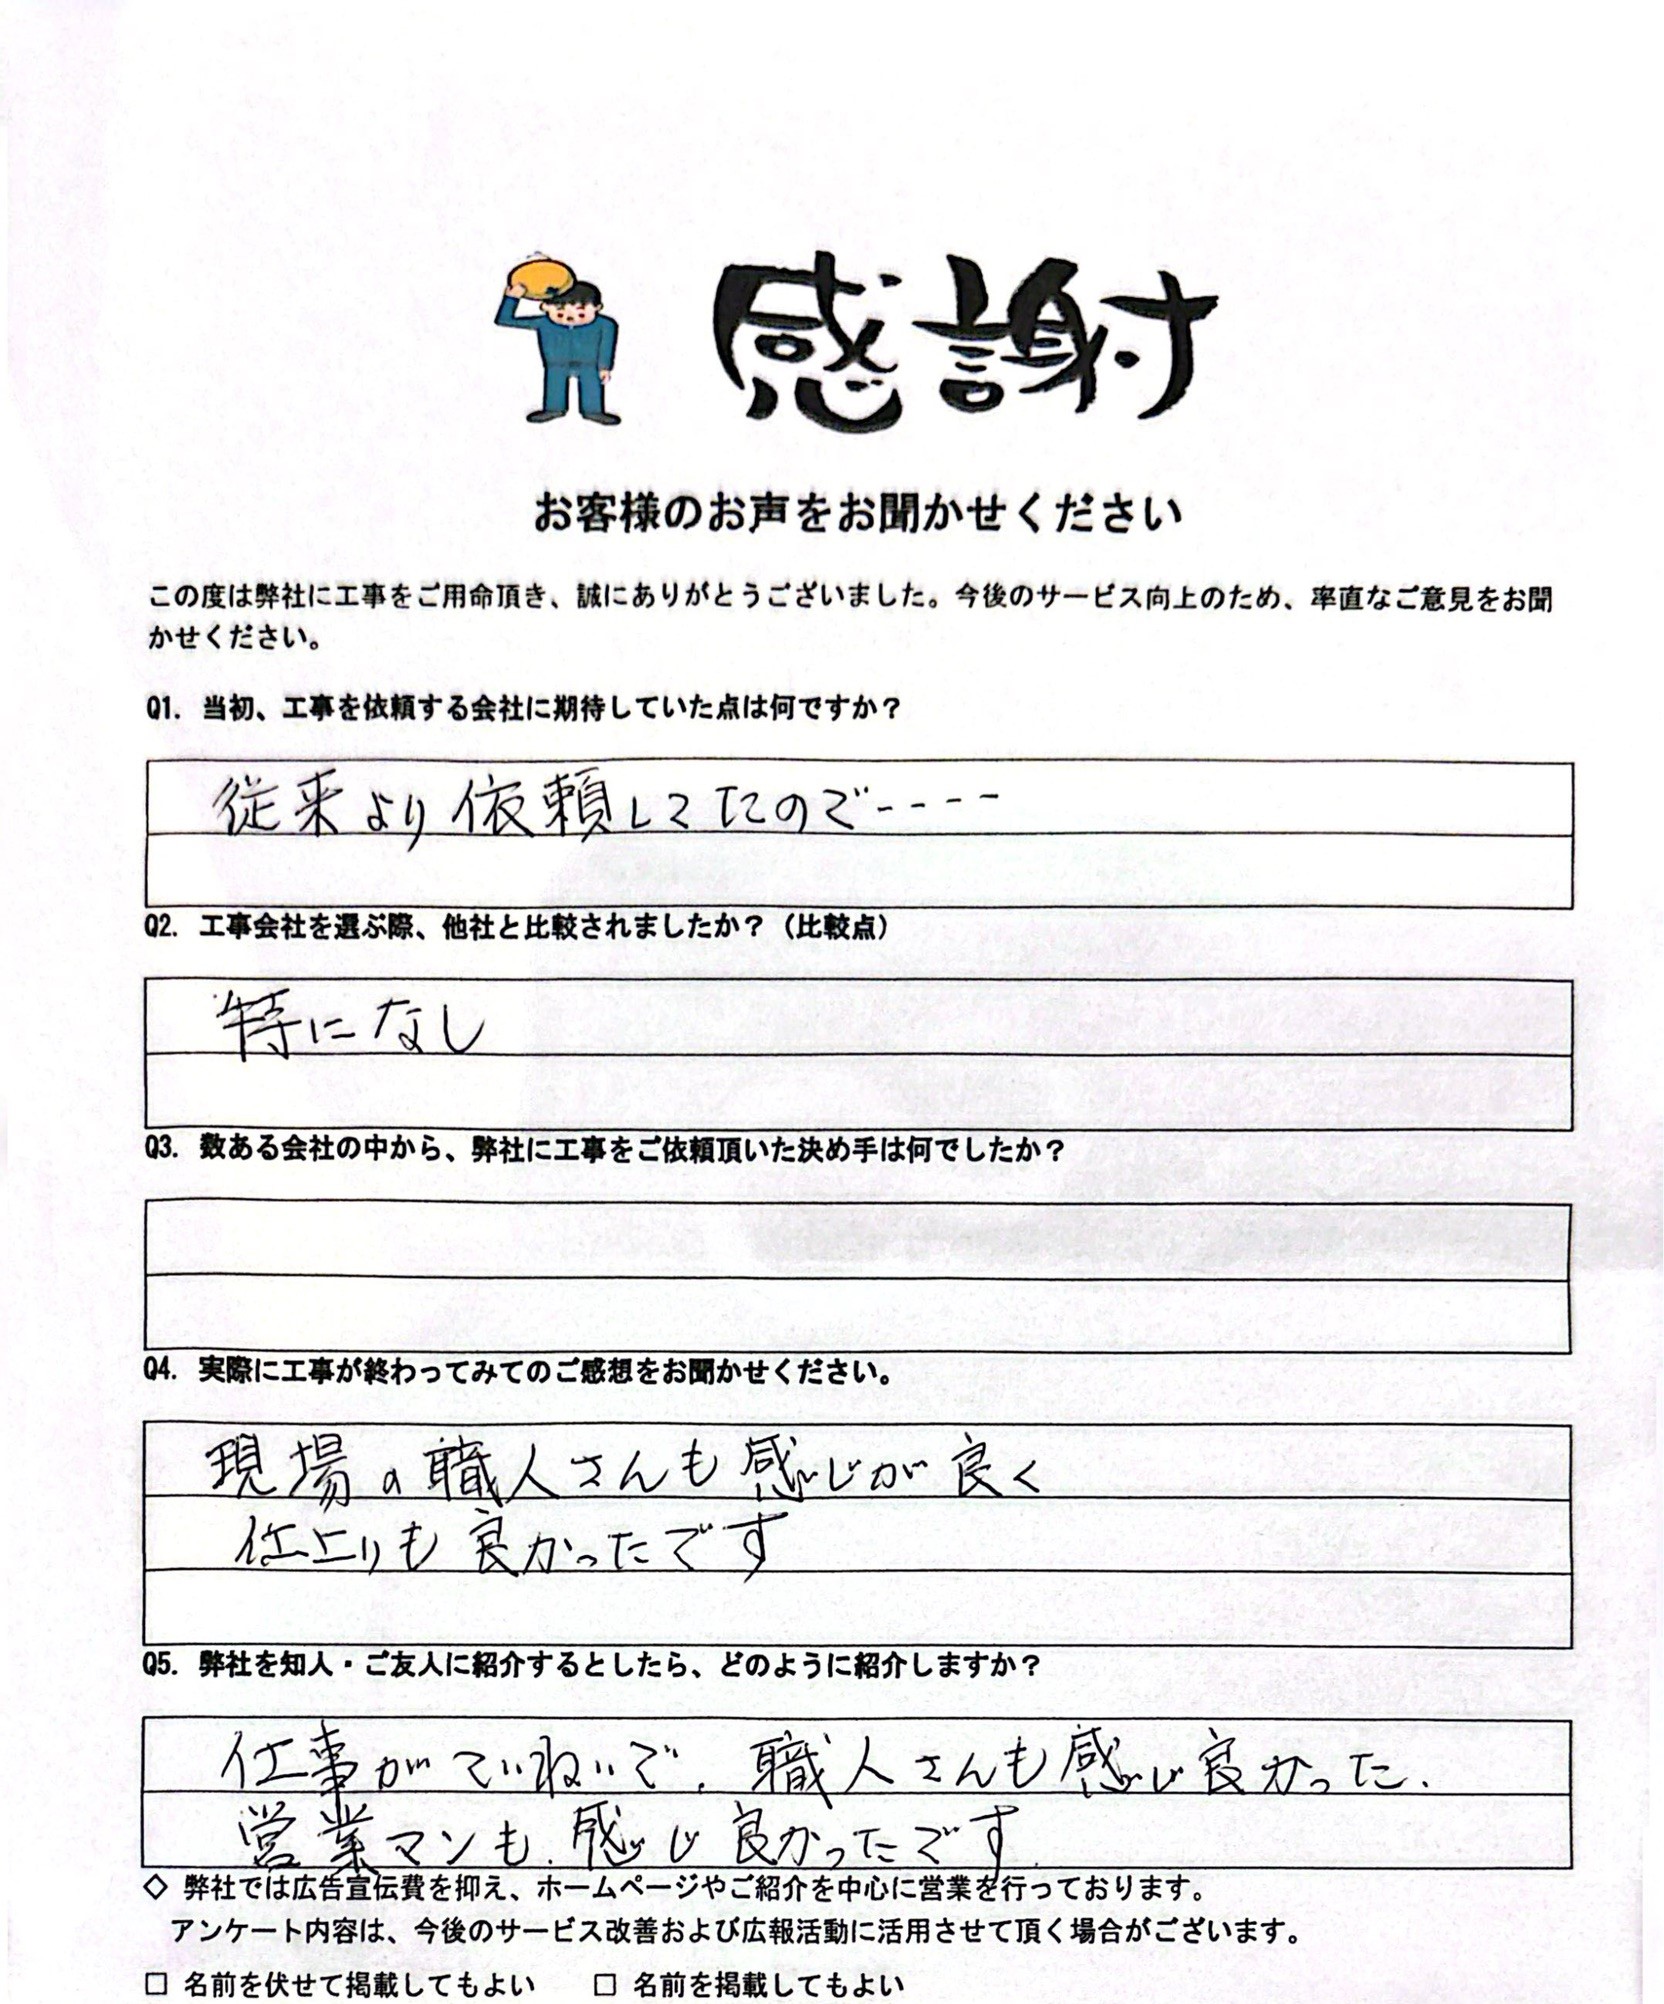 感謝
お客様のお声をお聞かせください
この度は弊社に工事をご用命頂き、誠にありがとうございました。今後のサービス向上のため、率直なご意見をお聞
かせください。
Q1. 当初、工事を依頼する会社に期待していた点は何ですか？
従来より依頼してたので----
Q2. 工事会社を選ぶ際、他社と比較されましたか？（比較点）
特になし
Q3. 数ある会社の中から、弊社に工事をご依頼頂いた決め手は何でしたか？
Q4. 実際に工事が終わってみてのご感想をお聞かせください。
現場の職人さんも感じが良く
仕上りも良かったです
Q5. 弊社を知人・ご友人に紹介するとしたら、どのように紹介しますか？
仕事がていねいで、職人さんも感じ良かった.
営業マンも、感じ良かったです.
◇ 弊社では広告宣伝費を抑え、ホームページやご紹介を中心に営業を行っております。
アンケート内容は、今後のサービス改善および広報活動に活用させて頂く場合がございます。
□ 名前を伏せて掲載してもよい　□ 名前を掲載してもよい